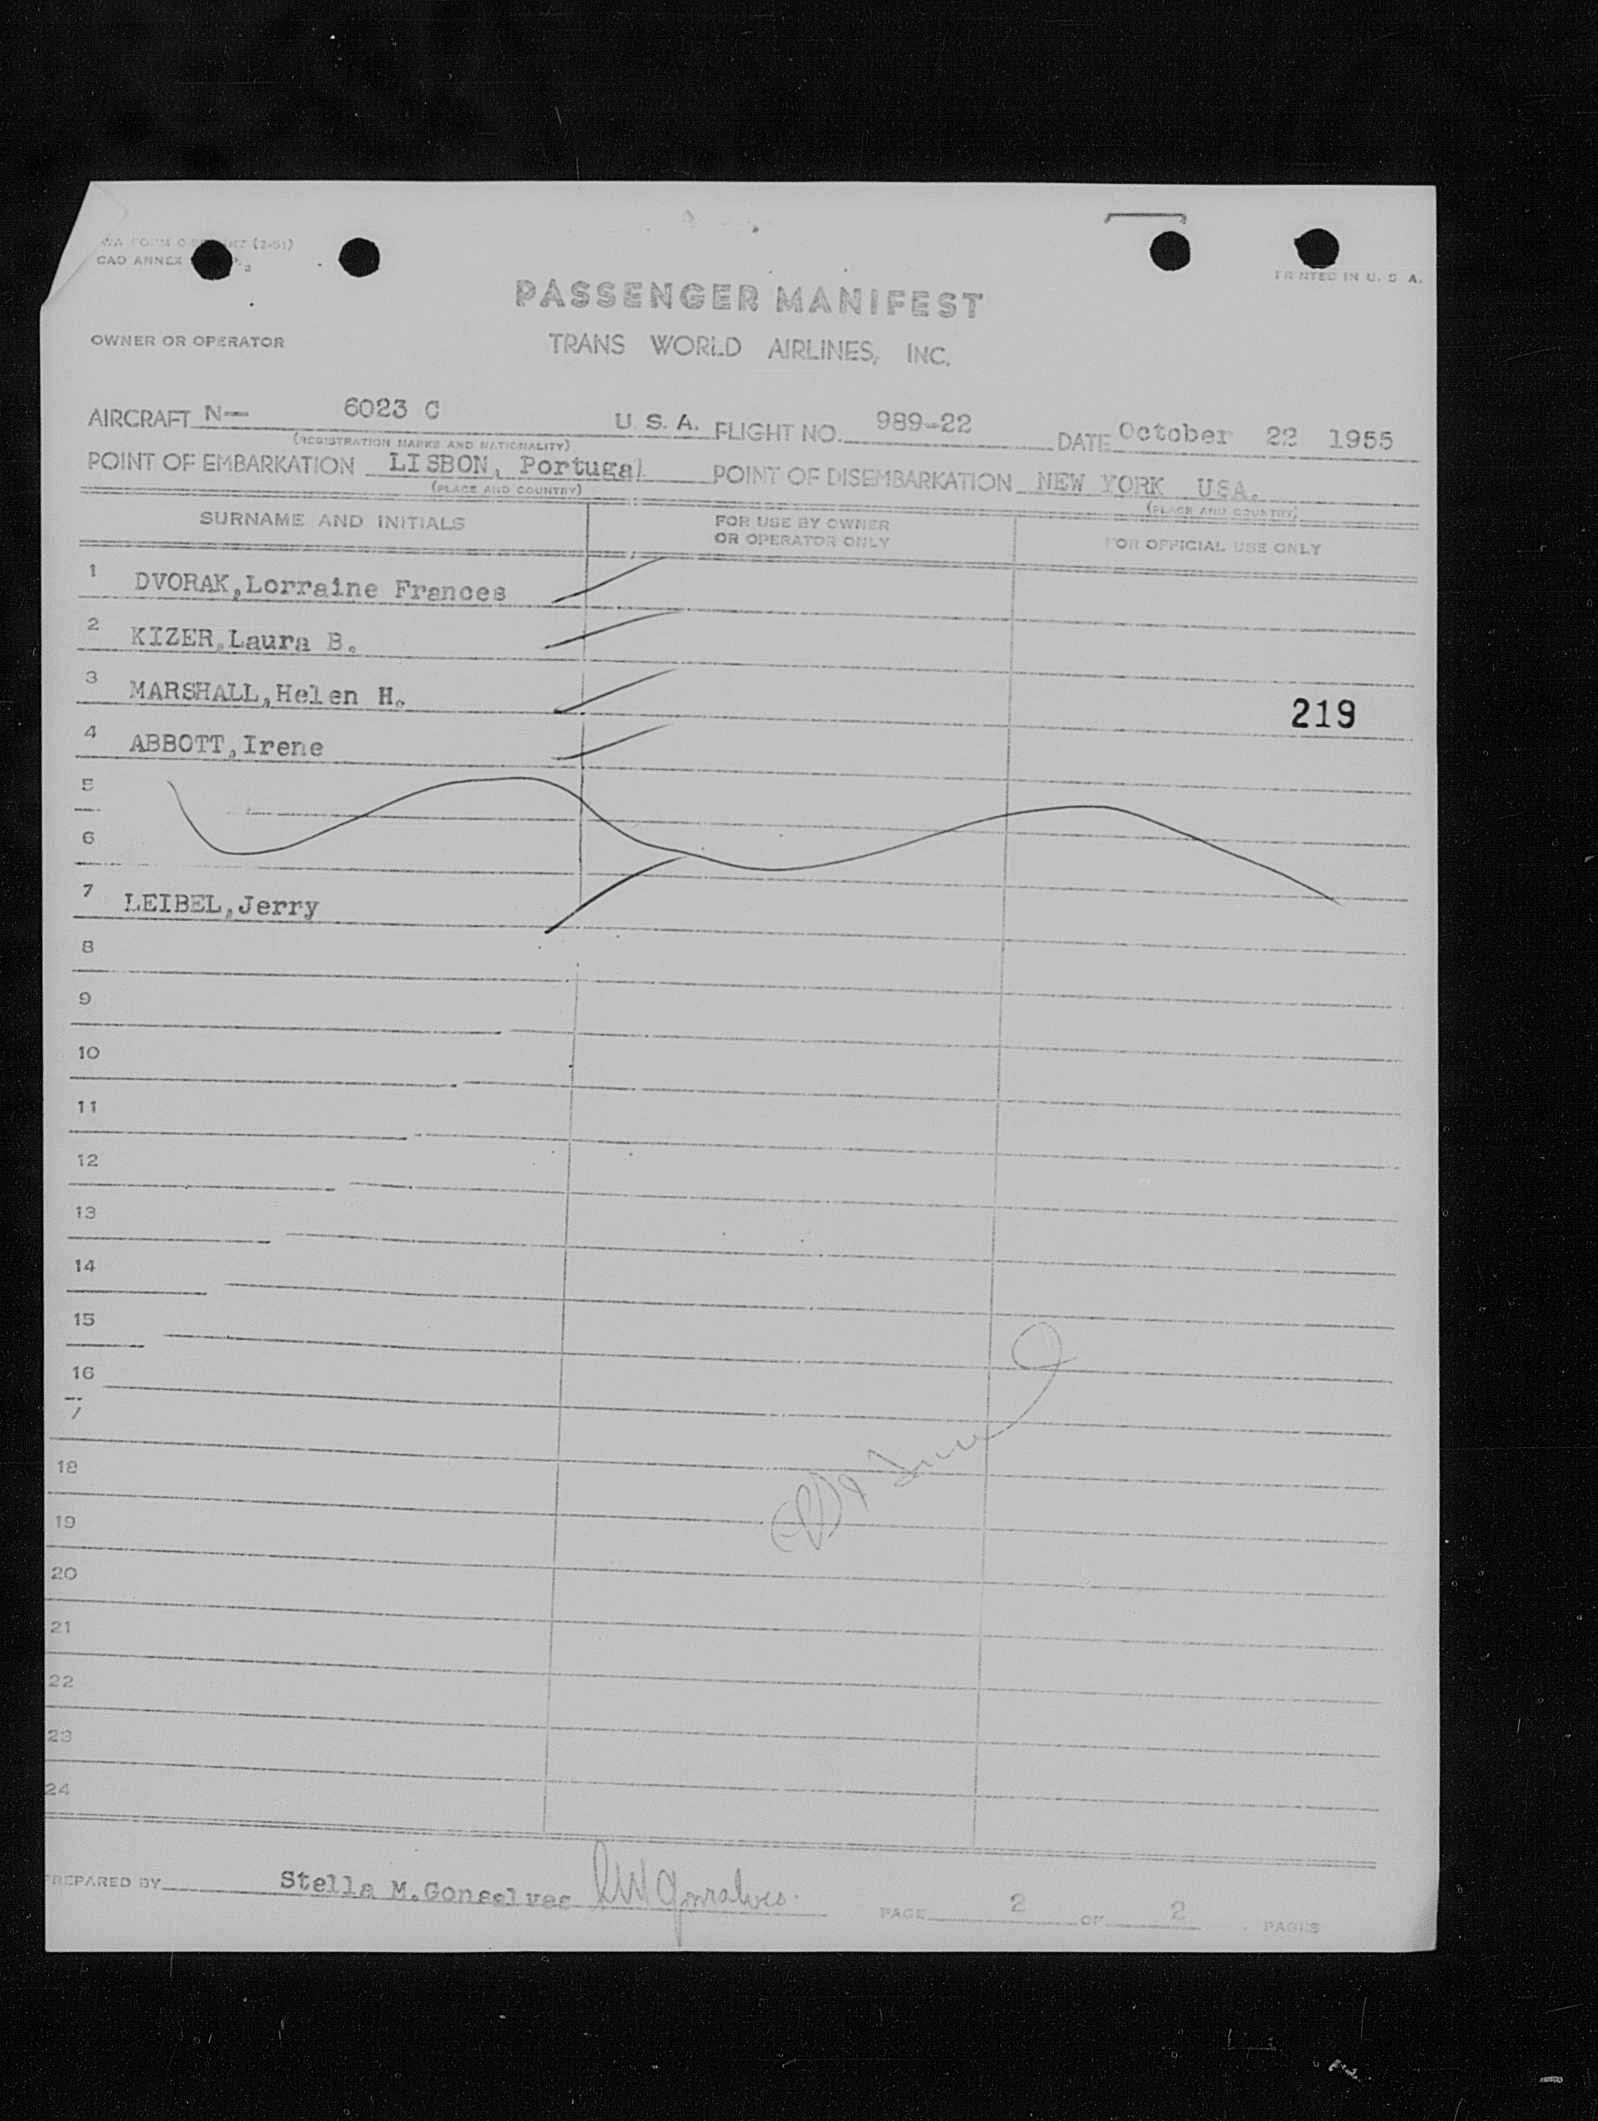 WA FORM O (2-51)
CAO ANNEX
PRINTED IN U. S. A.
PASSENGER MANIFEST
OWNER OR OPERATOR TRANS WORLD AIRLINES, INC.
AIRCRAFT N— 6023 C U. S. A. FLIGHT NO. 989-22 DATE October 22 1955
(REGISTRATION MARKS AND NATIONALITY)
POINT OF EMBARKATION LISBON, Portugal POINT OF DISEMBARKATION NEW YORK USA.
(PLACE AND COUNTRY) (PLACE AND COUNTRY)
SURNAME AND INITIALS FOR USE BY OWNER OR OPERATOR ONLY FOR OFFICIAL USE ONLY
1 DVORAK,Lorraine Frances
2 KIZER,Laura B.
3 MARSHALL,Helen H. 219
4 ABBOTT,Irene
5
6
7 LEIBEL,Jerry
8
9
10
11
12
13
14
15
16
7
18
19
20
21
22
23
24
PREPARED BY Stella M.Gonsalves SMGonsalves. PAGE 2 OF 2 PAGES